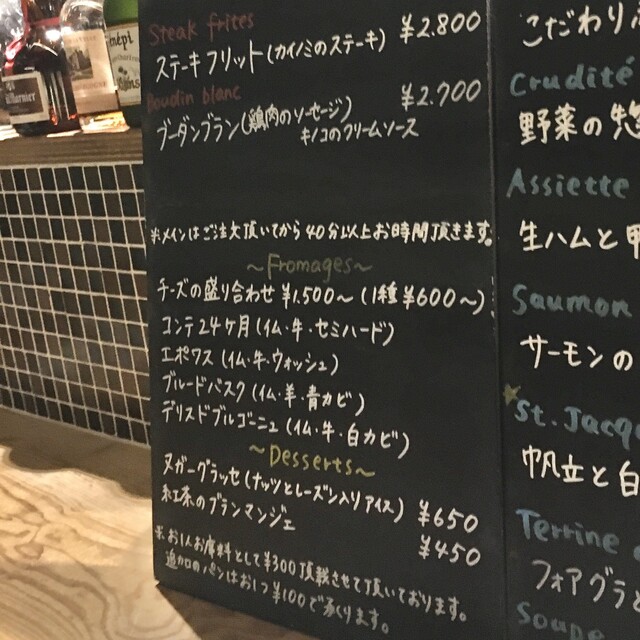 Steak frites
ステーキフリット(カイノミのステーキ) ¥2.800
Boudin blanc
ブーダンブラン(鶏肉のソーセージ) ¥2.700
キノコのクリームソース
※メインはご注文頂いてから40分以上お時間頂きます。
~Fromages~
チーズの盛り合わせ ¥1.500~(1種¥600~)
コンテ24ヶ月(仏・牛・セミハード)
エポワス(仏・牛・ウォッシュ)
ブルードバスク(仏・羊・青カビ)
デリスドブルゴーニュ(仏・牛・白カビ)
~Desserts~
ヌガーグラッセ(ナッツとレーズン入りアイス) ¥650
紅茶のブランマンジェ ¥450
※お1人お席料として¥300頂戴させて頂いております。
追加のパンはお1つ¥100で承ります。
こだわり
Crudité
野菜の惣
Assiette
生ハムと
Saumon
サーモンの
St. Jacqu
帆立と白
Terrine
フォアグラと
Soupe